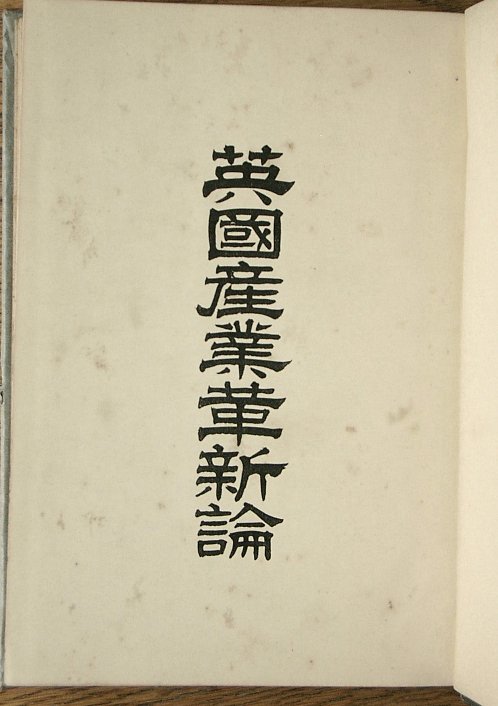 英國産業革新論